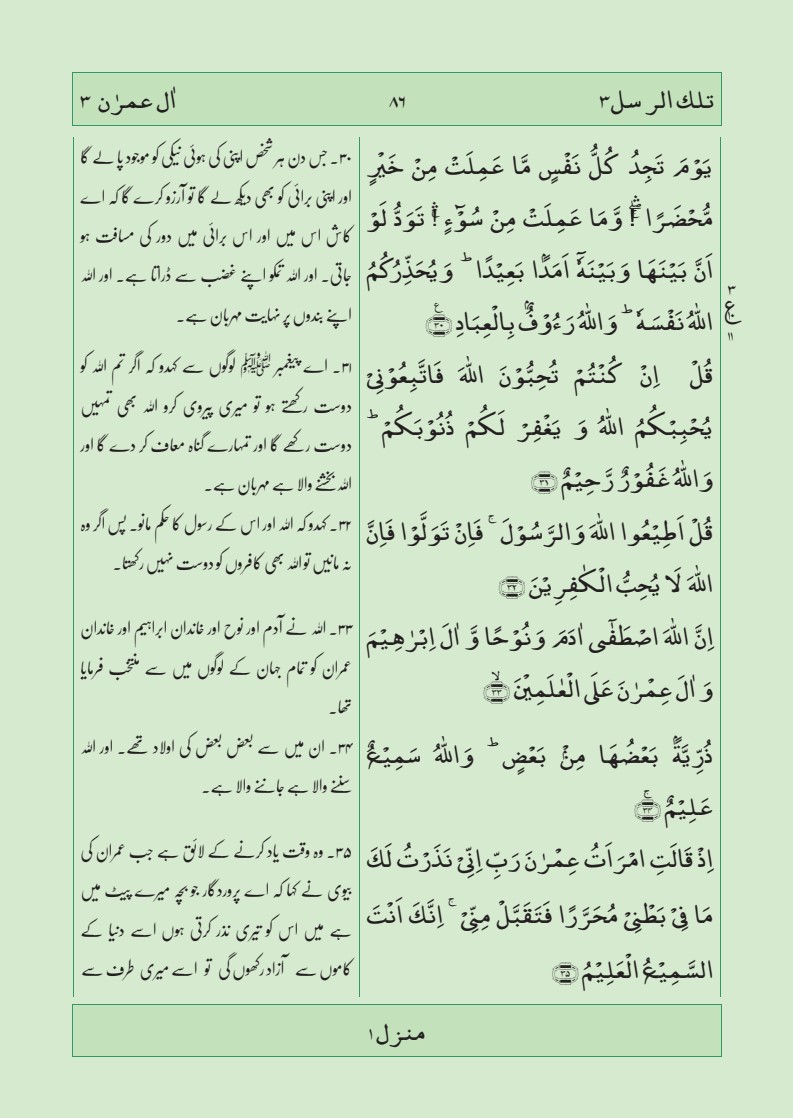 تلك الرسل ٣
٨٦
اٰل عمرٰن ٣
يَوۡمَ تَجِدُ كُلُّ نَفۡسٍ مَّا عَمِلَتۡ مِنۡ خَيۡرٍ
مُّحۡضَرًا ۛۚ وَّمَا عَمِلَتۡ مِنۡ سُوۡٓءٍ ۛۚ تَوَدُّ لَوۡ
اَنَّ بَيۡنَهَا وَبَيۡنَهٗۤ اَمَدًۢا بَعِيۡدًا ؕ وَيُحَذِّرُكُمُ
اللّٰهُ نَفۡسَهٗ ؕ وَاللّٰهُ رَءُوۡفٌۢ بِالۡعِبَادِ ﴿۳۰﴾
قُلۡ اِنۡ كُنۡتُمۡ تُحِبُّوۡنَ اللّٰهَ فَاتَّبِعُوۡنِىۡ
يُحۡبِبۡكُمُ اللّٰهُ وَ يَغۡفِرۡ لَكُمۡ ذُنُوۡبَكُمۡ ؕ
وَاللّٰهُ غَفُوۡرٌ رَّحِيۡمٌ ﴿۳۱﴾
قُلۡ اَطِيۡعُوا اللّٰهَ وَالرَّسُوۡلَ ۚ فَاِنۡ تَوَلَّوۡا فَاِنَّ
اللّٰهَ لَا يُحِبُّ الۡكٰفِرِيۡنَ ﴿۳۲﴾
اِنَّ اللّٰهَ اصۡطَفٰۤى اٰدَمَ وَنُوۡحًا وَّ اٰلَ اِبۡرٰهِيۡمَ
وَ اٰلَ عِمۡرٰنَ عَلَى الۡعٰلَمِيۡنَۙ ﴿۳۳﴾
ذُرِّيَّةًۢ بَعۡضُهَا مِنۡۢ بَعۡضٍ ؕ وَاللّٰهُ سَمِيۡعٌ
عَلِيۡمٌ ۚ ﴿۳۴﴾
اِذۡ قَالَتِ امۡرَاَتُ عِمۡرٰنَ رَبِّ اِنِّىۡ نَذَرۡتُ لَكَ
مَا فِىۡ بَطۡنِىۡ مُحَرَّرًا فَتَقَبَّلۡ مِنِّىۡ ۚ اِنَّكَ اَنۡتَ
السَّمِيۡعُ الۡعَلِيۡمُ ﴿۳۵﴾
۳
ع
۱۱
۳۰۔ جس دن ہر شخص اپنی کی ہوئی نیکی کو موجود پا لے گا
اور اپنی برائی کو بھی دیکھ لے گا تو آرزو کرے گا کہ اے
کاش اس میں اور اس برائی میں دور کی مسافت ہو
جاتی۔ اور اللہ تمکو اپنے غضب سے ڈراتا ہے۔ اور اللہ
اپنے بندوں پر نہایت مہربان ہے۔
۳۱۔ اے پیغمبر ﷺ لوگوں سے کہدو کہ اگر تم اللہ کو
دوست رکھتے ہو تو میری پیروی کرو اللہ بھی تمہیں
دوست رکھے گا اور تمہارے گناہ معاف کر دے گا اور
اللہ بخشنے والا ہے مہربان ہے۔
۳۲۔ کہدو کہ اللہ اور اس کے رسول کا حکم مانو۔ پس اگر وہ
نہ مانیں تو اللہ بھی کافروں کو دوست نہیں رکھتا۔
۳۳۔ اللہ نے آدم اور نوح اور خاندان ابراہیم اور خاندان
عمران کو تمام جہان کے لوگوں میں سے منتخب فرمایا
تھا۔
۳۴۔ ان میں سے بعض بعض کی اولاد تھے۔ اور اللہ
سننے والا ہے جاننے والا ہے۔
۳۵۔ وہ وقت یاد کرنے کے لائق ہے جب عمران کی
بیوی نے کہا کہ اے پروردگار جو بچہ میرے پیٹ میں
ہے میں اس کو تیری نذر کرتی ہوں اسے دنیا کے
کاموں سے آزاد رکھوں گی تو اسے میری طرف سے
منزل ١